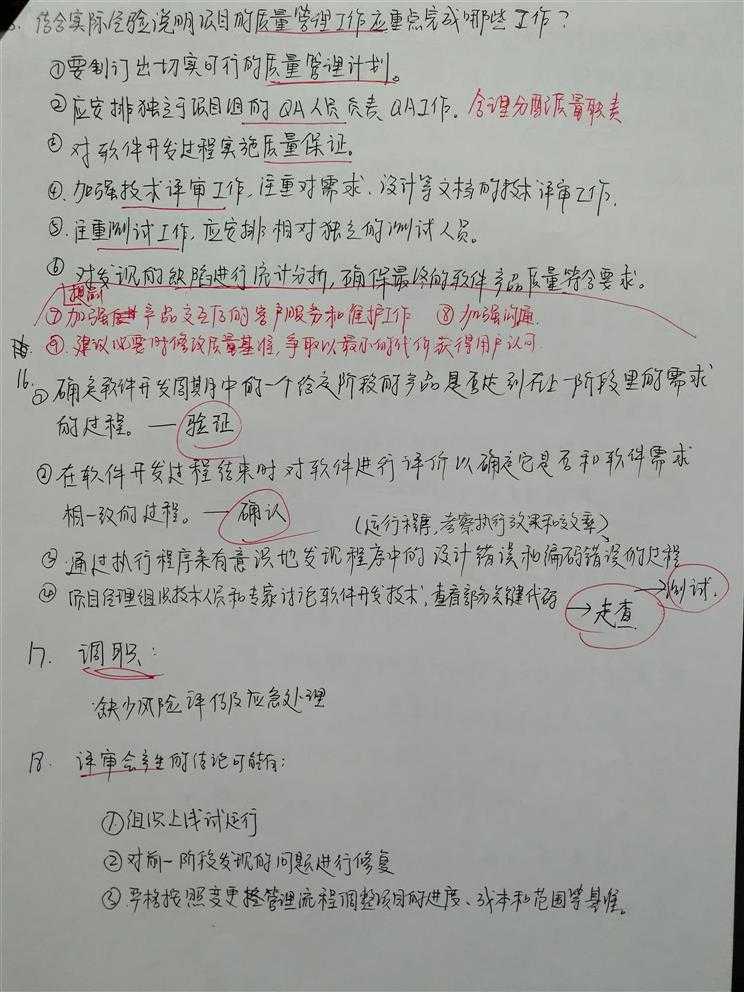 5. 结合实际经验说明项目的质量管理工作应重点完成哪些工作？
①要制订出切实可行的质量管理计划。
②应安排独立于项目组的QA人员负责QA工作. 合理分配质量职责
③对软件开发过程实施质量保证。
④.加强技术评审工作,注重对需求、设计等文档的技术评审工作.
⑤.注重测试工作,应安排相对独立的测试人员。
⑥对发现的缺陷进行统计分析,确保最终的软件产品质量符合要求。
提前
⑦加强产品交互后的客户服务和维护工作 ⑧加强沟通.
⑨.建议必要时修改质量基准,争取以最小的代价获得用户认可.
16.①确定软件开发周期中的一个给定阶段的产品是否达到在上一阶段里的需求
的过程。—验证
②在软件开发过程结束时对软件进行评价以确定它是否和软件需求
相一致的过程。—确认
(运行程序,考察执行效果和效率)
③通过执行程序来有意识地发现程序中的设计错误和编码错误的过程
→测试.
④项目经理组织技术人员和专家讨论软件开发技术,查看部分关键代码→走查
17. 调职:
缺少风险评估及应急处理
18. 评审会产生的结论可能有:
①组织上线试运行
②对前一阶段发现的问题进行修复
③严格按照变更管理流程调整项目的进度、成本和范围等基准。